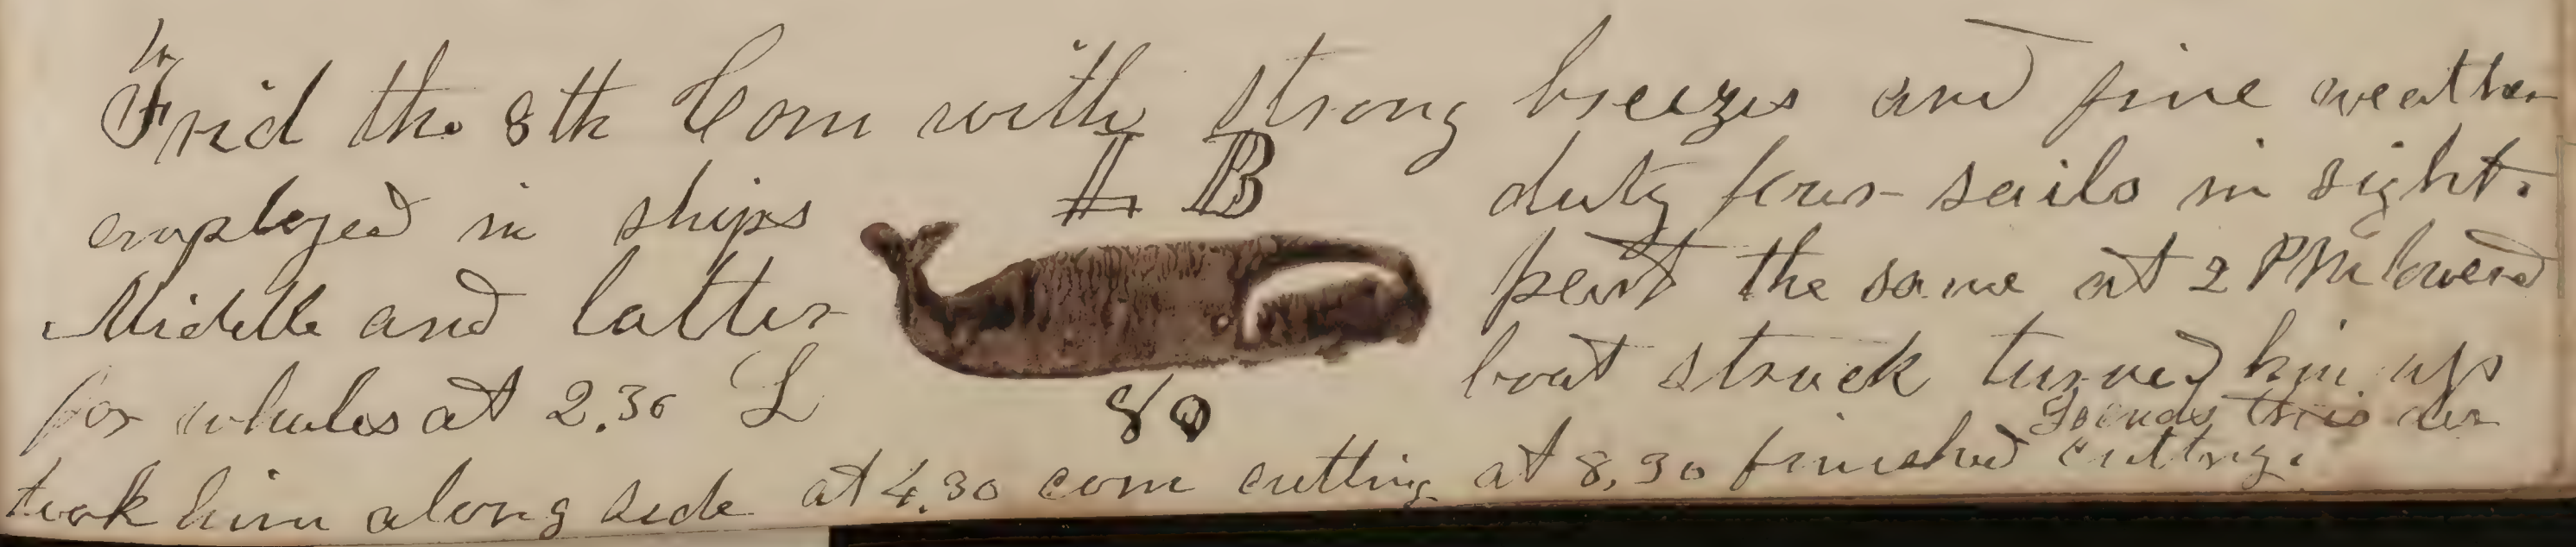 Frid the 8th Com with strong breezes and fine weather
L B
employed in ships duty four sails in sight.
Middle and latter part the same at 2 PM lowered
for whales at 2.30 L boat struck turned him up
80
So ends this
took him along side at 4.30 com cutting at 8.30 finished cutting.